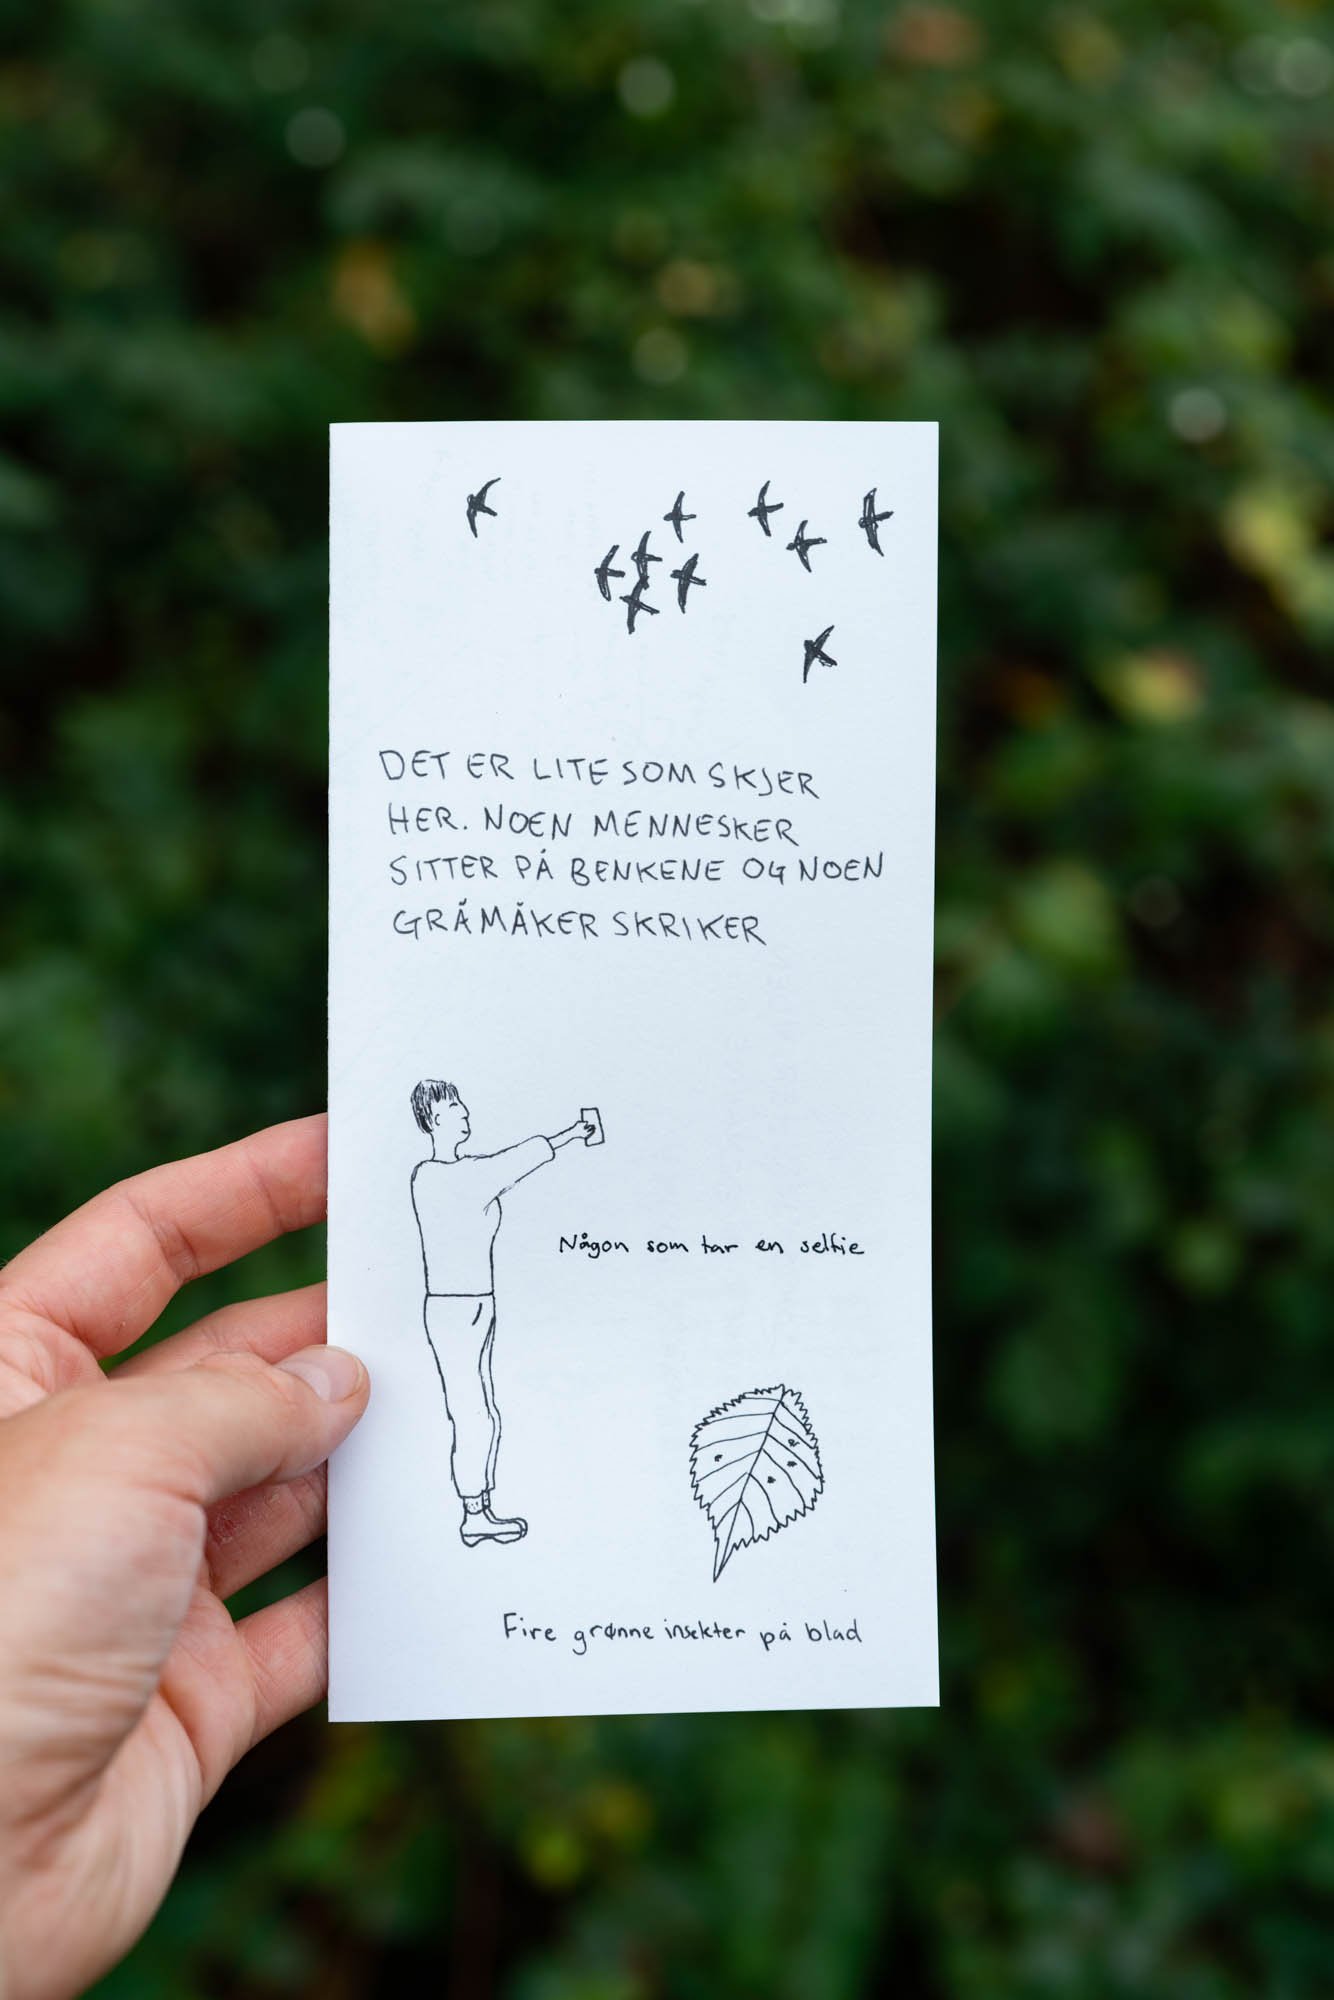 DET ER LITE SOM SKJER
HER. NOEN MENNESKER
SITTER PÅ BENKENE OG NOEN
GRÅMÅKER SKRIKER
Någon som tar en selfie
Fire grønne insekter på blad